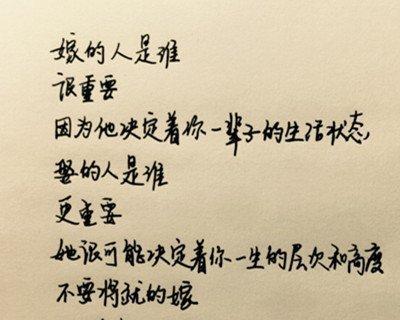 嫁的人是谁
很重要
因为他决定着你一辈子的生活状态
娶的人是谁
更重要
她很可能决定着你一生的层次和高度
不要将就的嫁